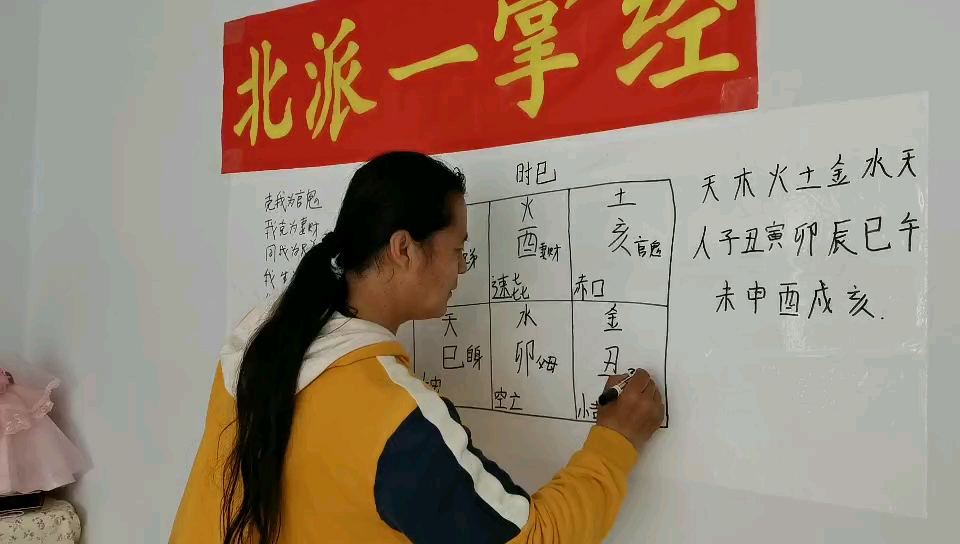 北派一掌经
时巳
克我为官鬼
我克为妻财
同我为
我生
火
酉 妻财
速喜
土
亥 官鬼
赤口
天
巳 自身
水
卯 父母
空亡
金
丑
小吉
天木火土金水天
人子丑寅卯辰巳午
未申酉戌亥.